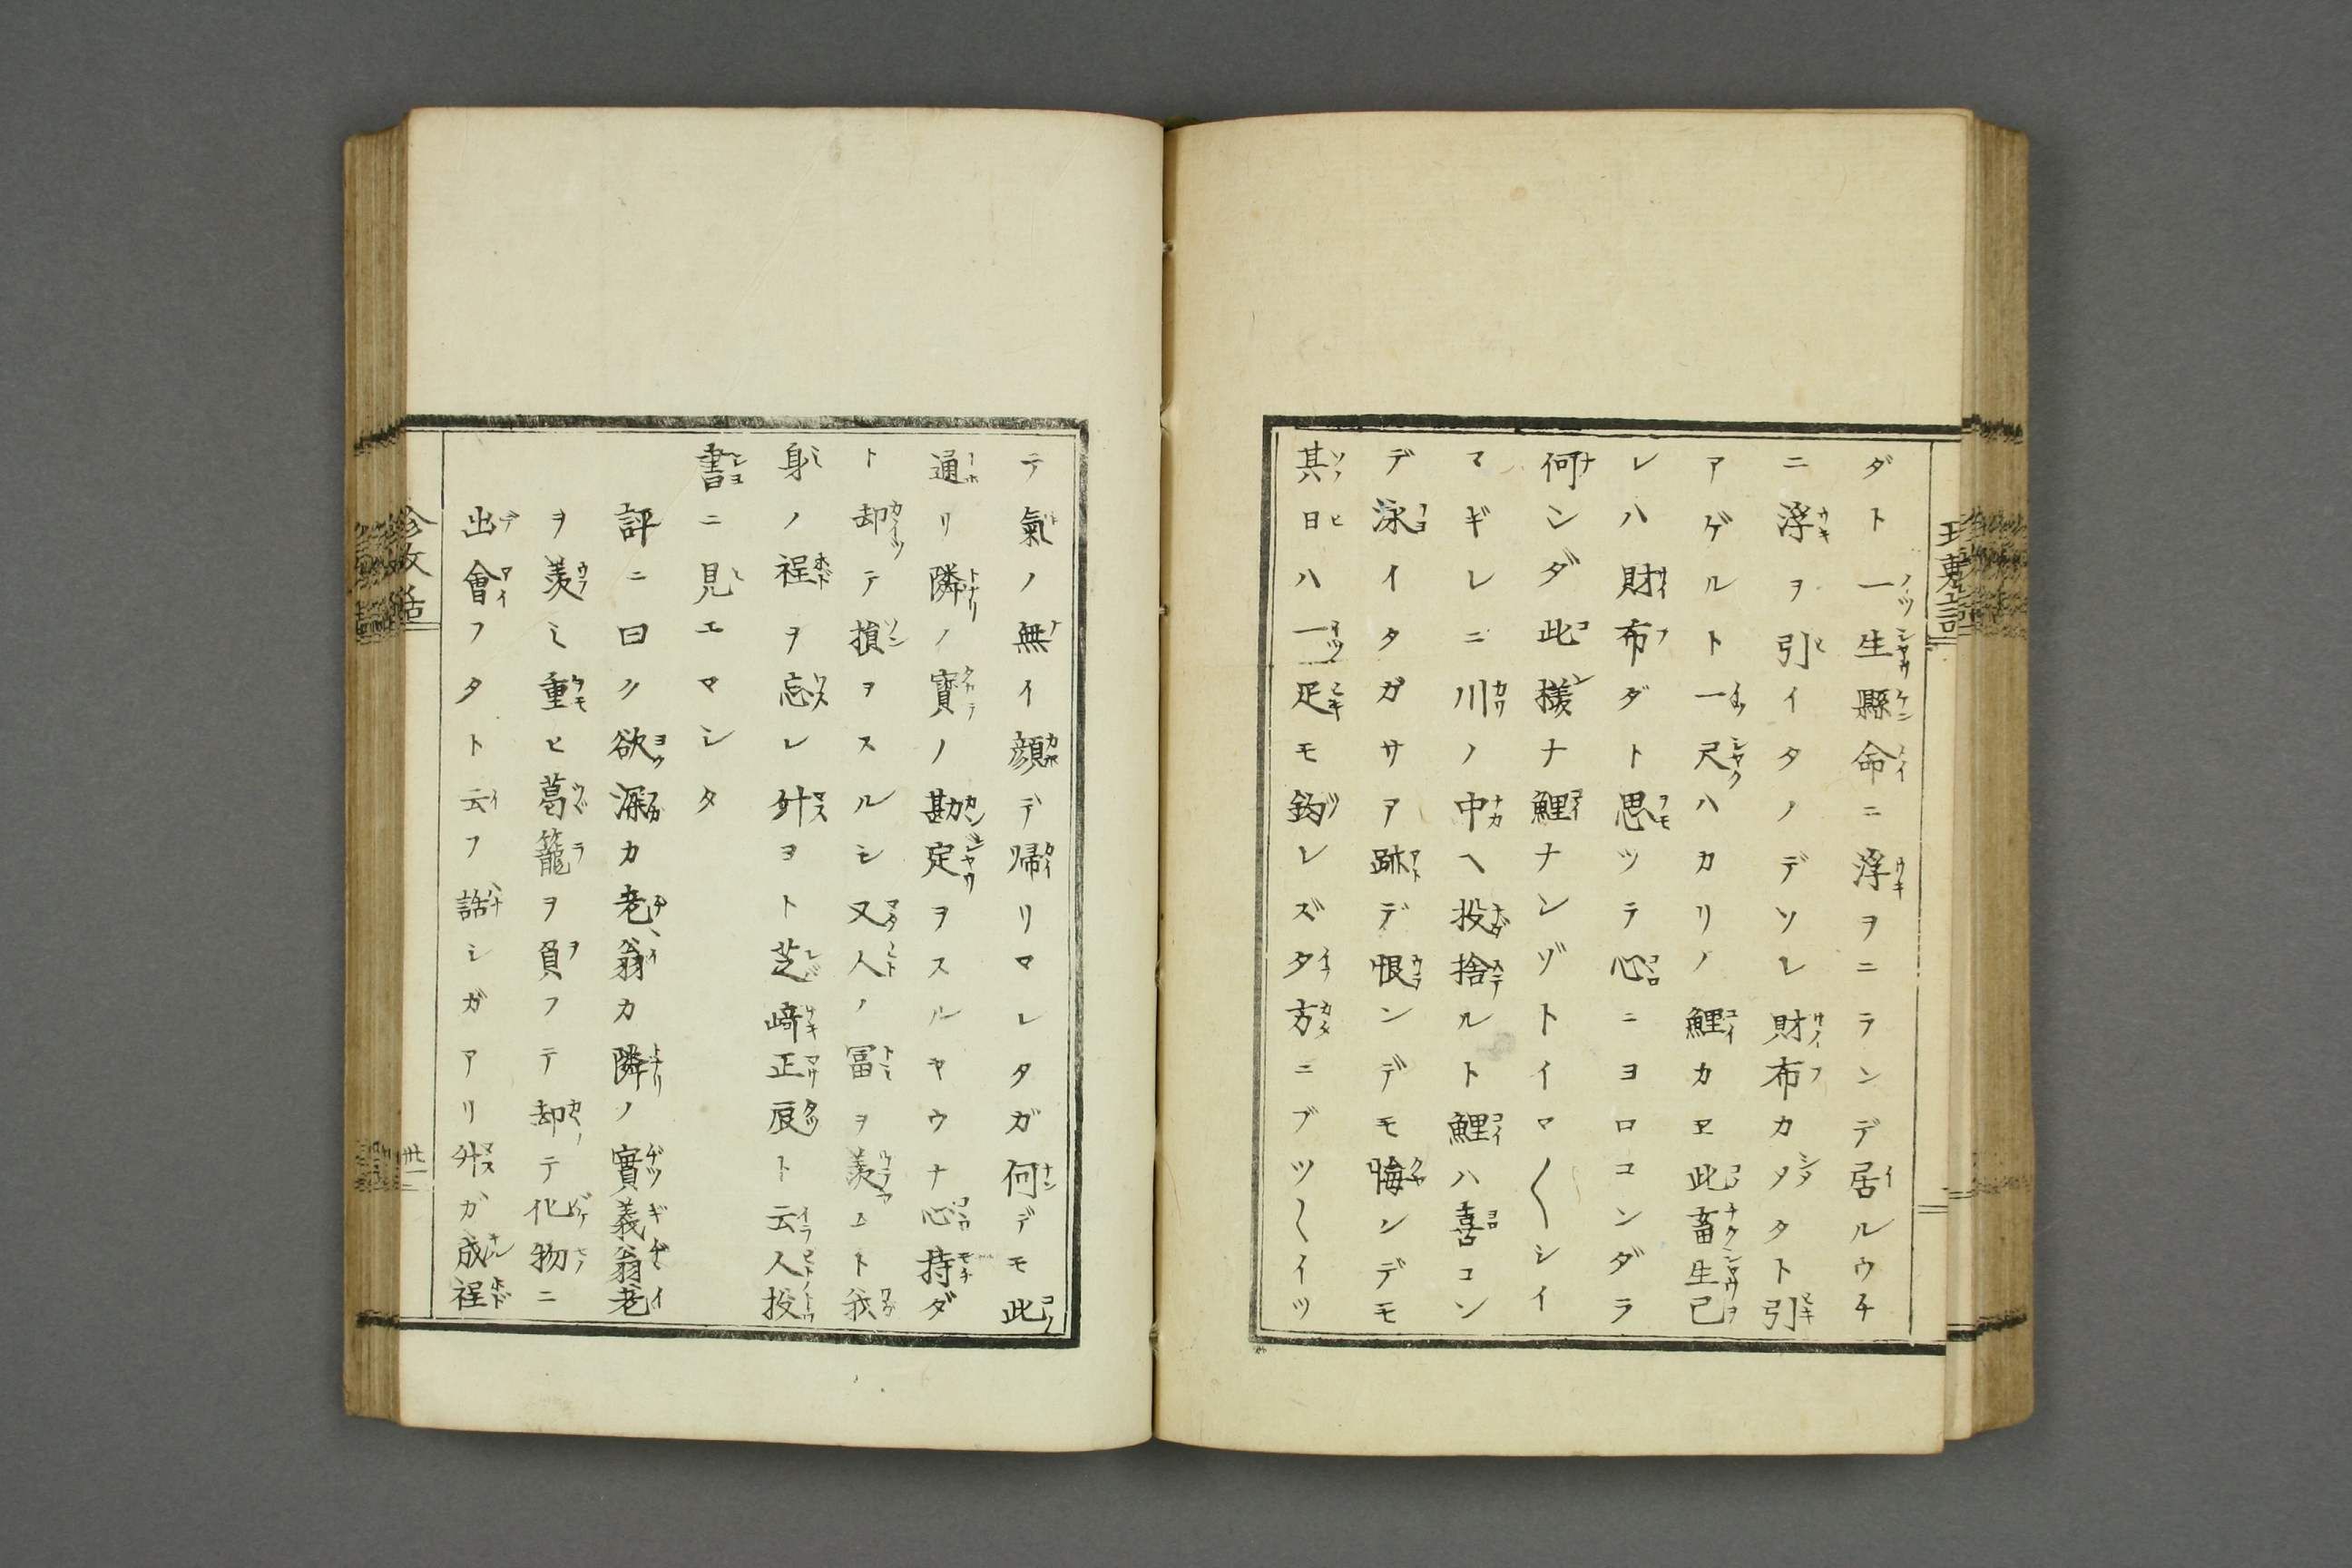 ダト一生縣命ニ浮ヲニランデ居ルウチ
ニ浮ヲ引イタノデソレ財布カヽタト引
アゲルト一尺ハカリノ鯉カヱ此畜生己
レハ財布ダト思ツテ心ニヨロコンダラ
何ンダ此様ナ鯉ナンゾトイマ〱シイ
マギレニ川ノ中ヘ投捨ルト鯉ハ喜コン
デ泳イタガサア跡デ恨ンデモ悔ンデモ
其日ハ一疋モ釣レズタ方ニブツ〱イツ
テ氣ノ無イ顔デ帰リマレタガ何デモ此
通リ隣ノ寳ノ勘定ヲスルヤウナ心持ダ
ト却テ損ヲスルシ又人ノ冨ヲ羨ムト我
身ノ程ヲ忘レ舛ヨト芝﨑正辰ト云人投
書ニ見エマシタ
評ニ曰ク欲深カ老翁カ隣ノ實義翁老
ヲ羨ミ重ヒ葛籠ヲ負フテ却テ化物ニ
出會フタト云フ話シガアリ舛ガ成程